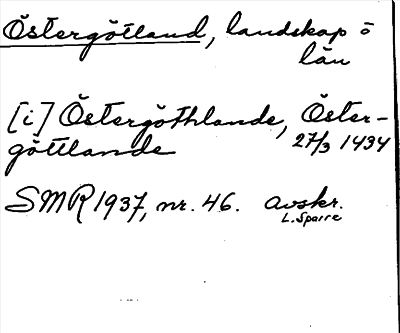 Östergötland, landskap o
län
[i] Östergöthlande, Öster-
götlande 27/3 1434
SMR 1937, nr. 46. avskr.
L. Sparre